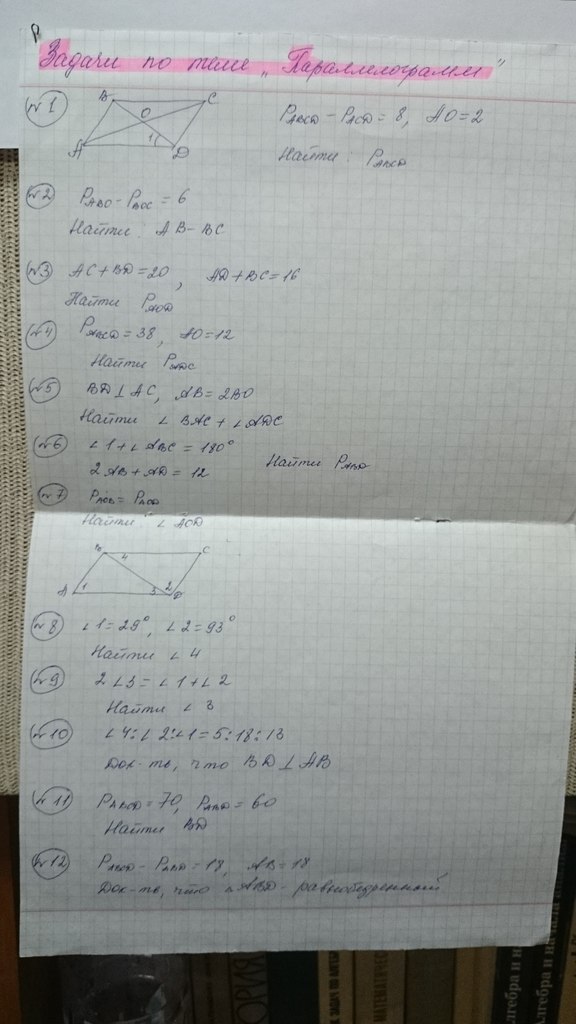 Задачи по теме „Параллелограмм"
№1
B C
O
1
A D
P_ABCD − P_ACD = 8, AO = 2
Найти: P_ABCD
№2 P_ABO − P_BOC = 6
Найти: AB − BC
№3 AC + BD = 20, AD + BC = 16
Найти P_AOD
№4 P_ABCD = 38, AO = 12
Найти P_ADC
№5 BD ⊥ AC, AB = 2BO
Найти ∠ BAC + ∠ ADC
№6 ∠1 + ∠ ABC = 180°
2AB + AD = 12 Найти P_ABD
№7 P_AOB = P_AOD
Найти ∠ AOD
B 4 C
A 1 3 2 D
№8 ∠1 = 29°, ∠2 = 93°
Найти ∠4
№9 2∠3 = ∠1 + ∠2
Найти ∠3
№10 ∠4:∠2:∠1 = 5:18:13
Док-ть, что BD ⊥ AB
№11 P_ABCD = 70, P_ABD = 60
Найти BD
№12 P_ABCD − P_ABD = 18, AB = 18
Док-ть, что △ABD - равнобедренный